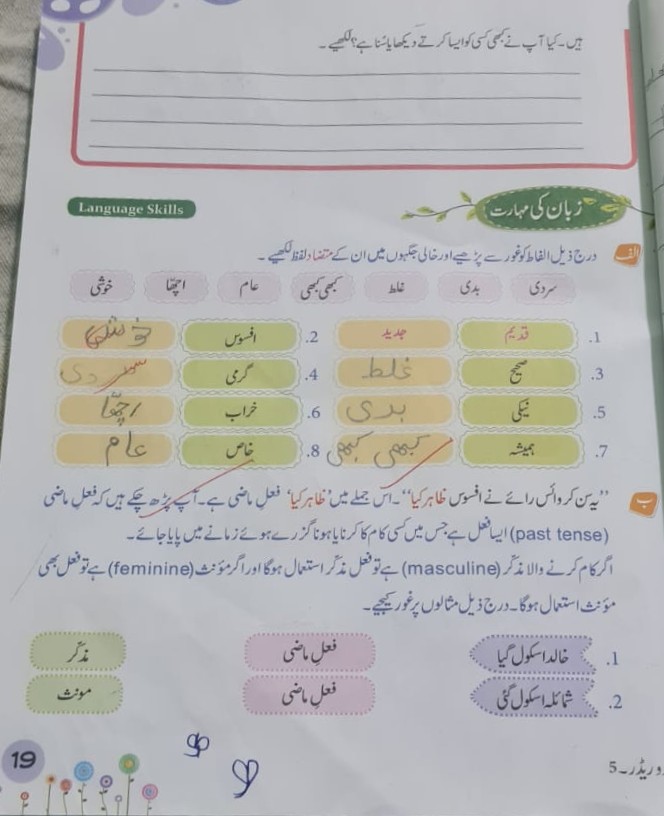 ہیں۔ کیا آپ نے کبھی کسی کو ایسا کرتے دیکھا یا سنا ہے؟ لکھیے۔
زبان کی مہارت Language Skills
الف درج ذیل الفاظ کو غور سے پڑھیے اور خالی جگہوں میں ان کے متضاد لفظ لکھیے۔
سردی بدی غلط کبھی کبھی عام اچھّا خوشی
1. قدیم جدید 2. افسوس خوشی
3. صحیح غلط 4. گرمی سردی
5. نیکی بدی 6. خراب اچھّا
7. ہمیشہ کبھی کبھی 8. خاص عام
ب ”یہ سن کر وائس رائے نے افسوس ظاہر کیا“۔ اس جملے میں ’ظاہر کیا‘ فعلِ ماضی ہے۔ آپ پڑھ چکے ہیں کہ فعلِ ماضی
(past tense) ایسا فعل ہے جس میں کسی کام کا کرنا یا ہونا گزرے ہوئے زمانے میں پایا جائے۔
اگر کام کرنے والا مذکّر (masculine) ہے تو فعل مذکّر استعمال ہوگا اور اگر مؤنث (feminine) ہے تو فعل بھی
مؤنث استعمال ہوگا۔ درج ذیل مثالوں پر غور کیجیے۔
1. خالد اسکول گیا فعلِ ماضی مذکّر
2. شمائلہ اسکول گئی فعلِ ماضی مونث
19
و ریڈر۔5